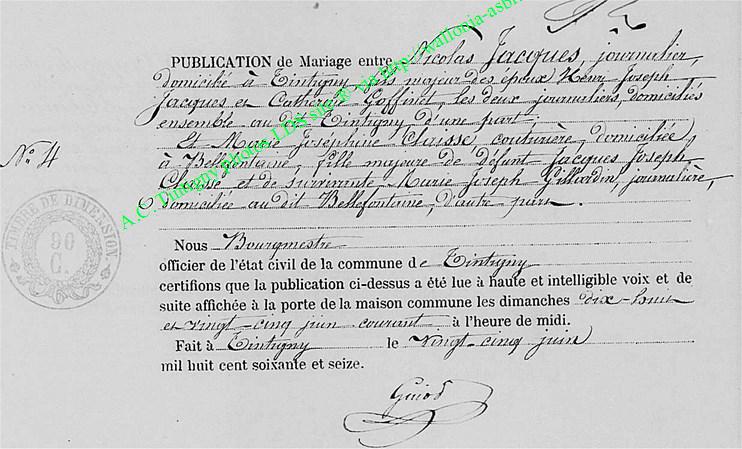 PUBLICATION de Mariage entre Nicolas Jacques, journalier,
domicilié à Tintigny, fils majeur des époux Henry Joseph
Jacques et Catherine Goffinet, les deux journaliers, domiciliés
ensemble au dit Tintigny d'une part
Et Marie Joséphine Claisse, couturière, domiciliée
à Bellefontaine, fille majeure de défunt Jacques Joseph
Claisse, et de survivante, Marie Joseph Gillardin, journalière,
domiciliée au dit Bellefontaine, d'autre part.
No 4
TIMBRE DE DIMENSION.
90
C.
Nous Bourgmestre
officier de l'état civil de la commune de Tintigny
certifions que la publication ci-dessus a été lue à haute et intelligible voix et de
suite affichée à la porte de la maison commune les dimanches dix-huit
et vingt-cinq juin courant à l'heure de midi.
Fait à Tintigny le vingt-cinq juin
mil huit cent soixante et seize.
A.C. Tintigny photos LDS site ® via http://wallonia-asb